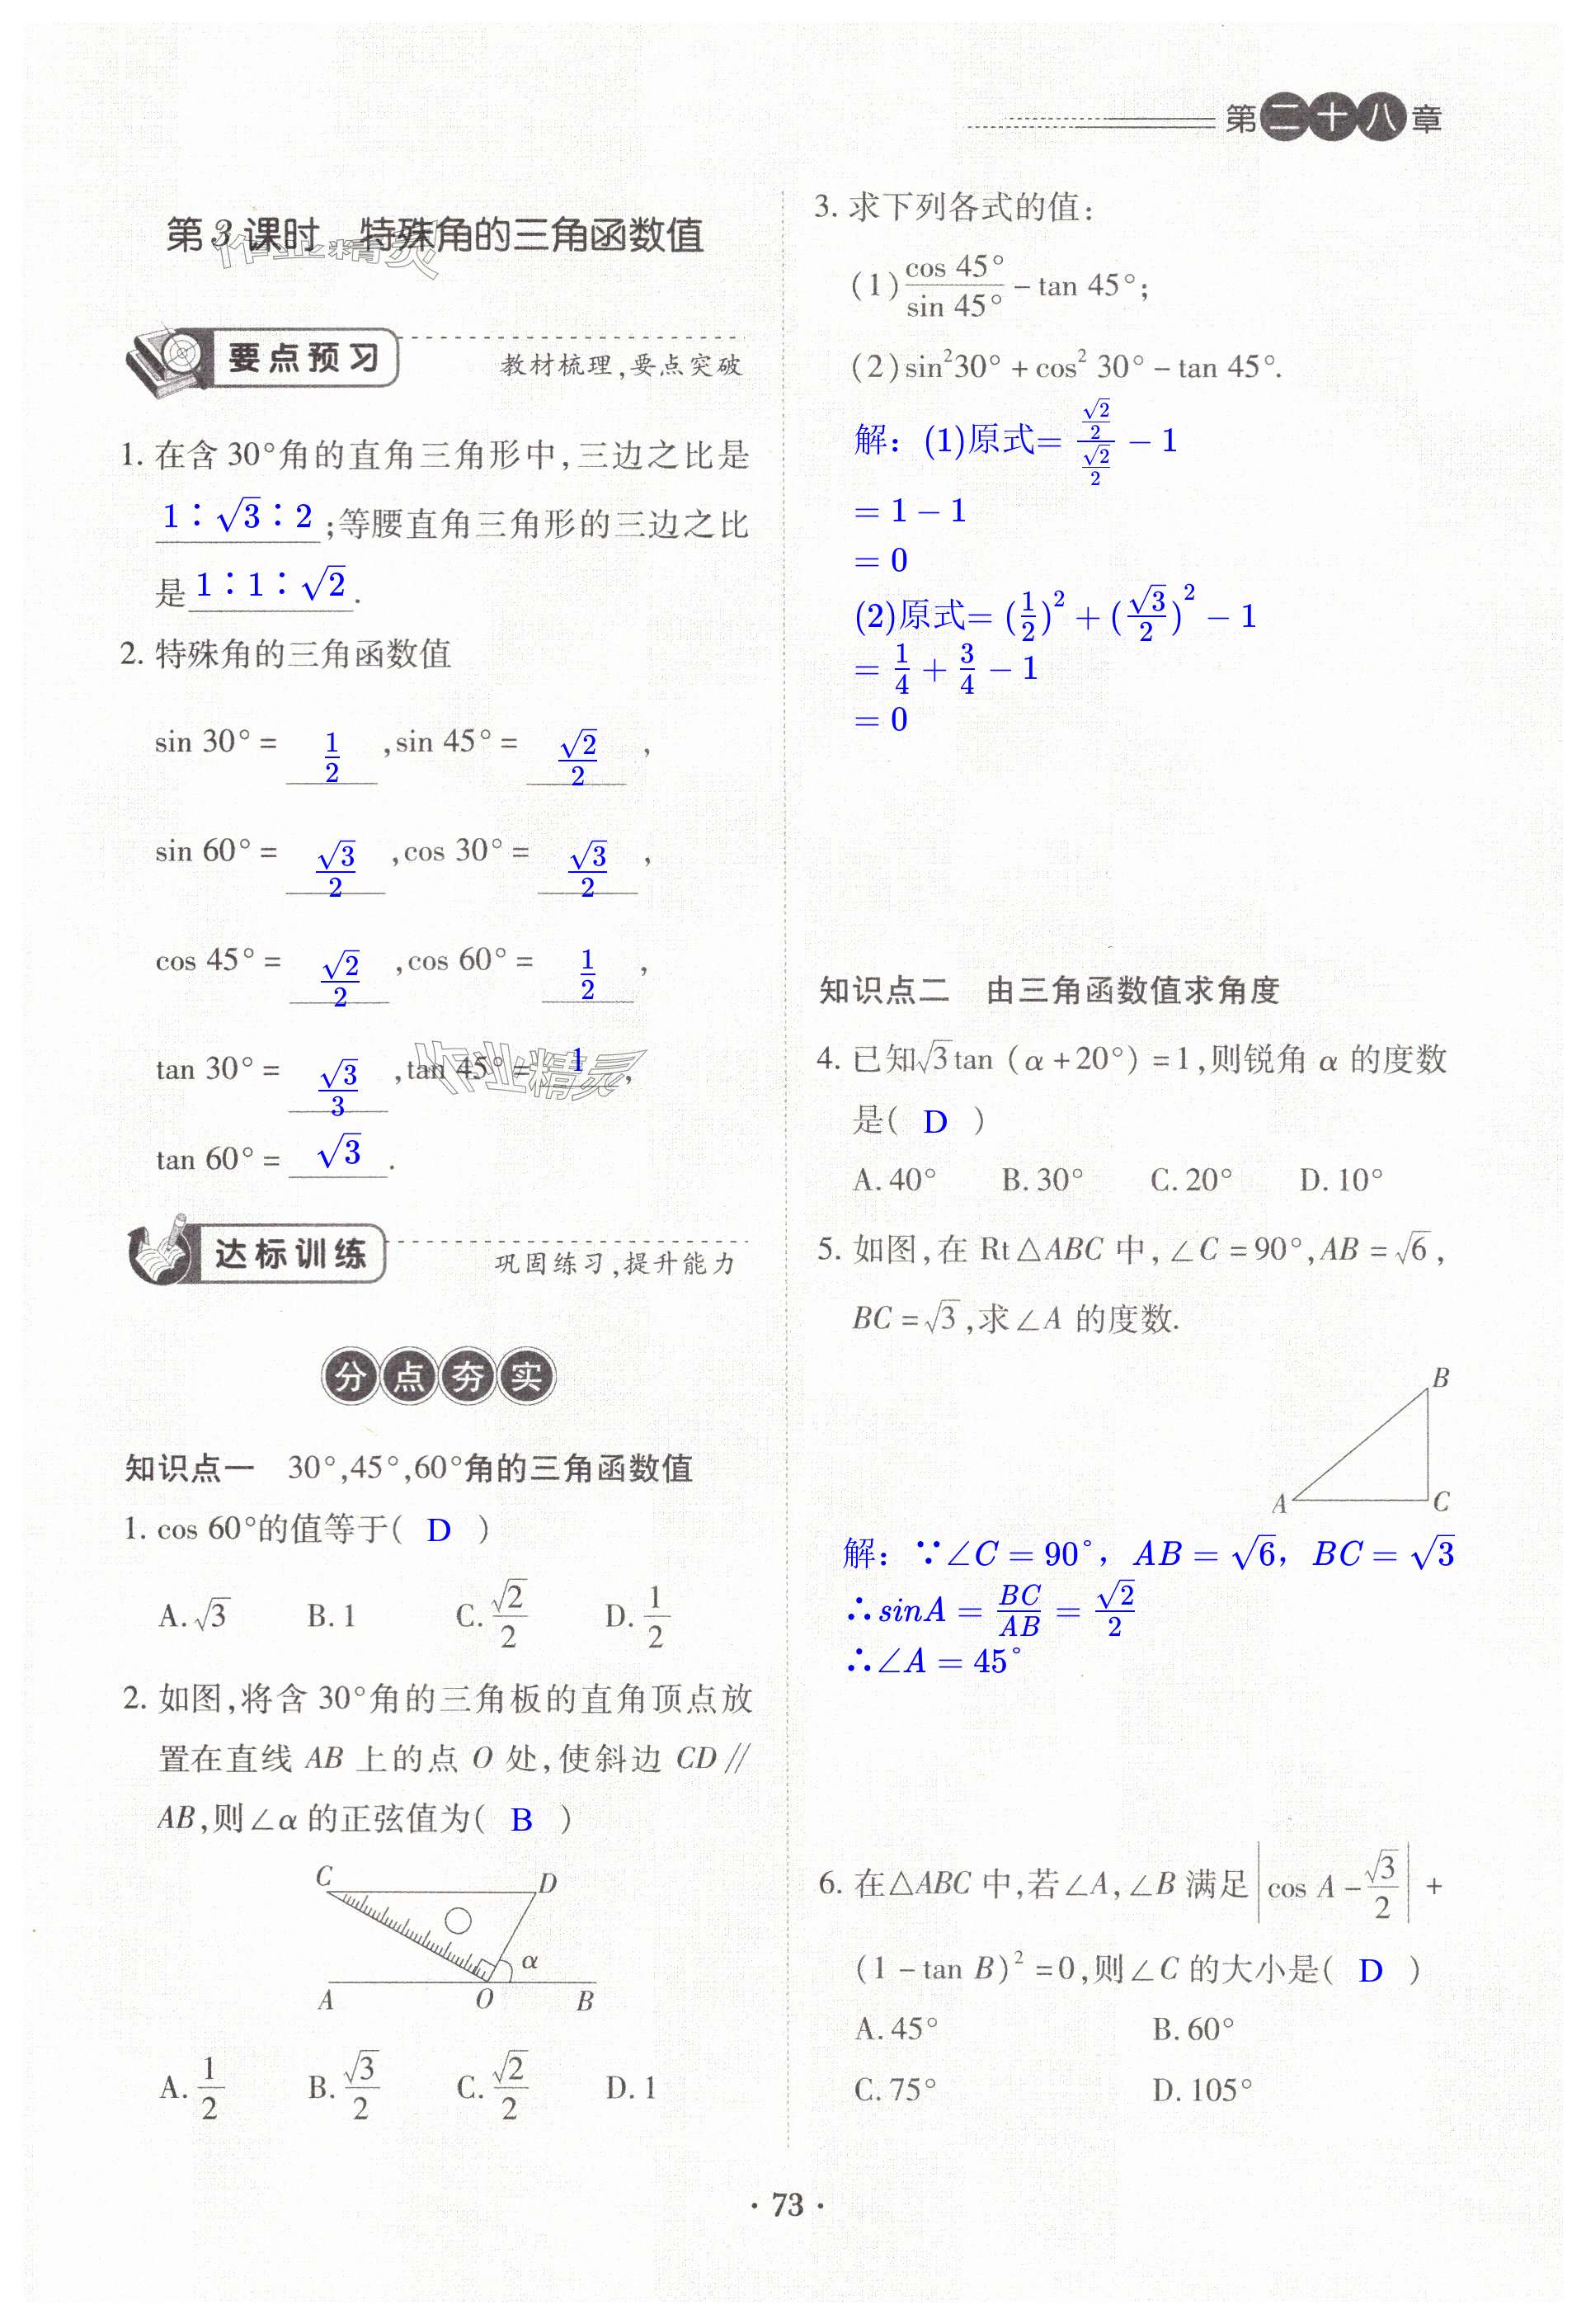 第二十八章
第3课时 特殊角的三角函数值
作业精灵
要点预习
教材梳理,要点突破
1. 在含30°角的直角三角形中,三边之比是
1∶√3∶2;等腰直角三角形的三边之比
是1∶1∶√2.
2. 特殊角的三角函数值
sin 30°=1/2,sin 45°=√2/2,
sin 60°=√3/2,cos 30°=√3/2,
cos 45°=√2/2,cos 60°=1/2,
tan 30°=√3/3,tan 45°=1,
作业精灵
tan 60°=√3.
达标训练
巩固练习,提升能力
分点夯实
知识点一 30°,45°,60°角的三角函数值
1. cos 60°的值等于( D )
A.√3 B.1 C.√2/2 D.1/2
2. 如图,将含30°角的三角板的直角顶点放
置在直线 AB 上的点 O 处,使斜边 CD∥
AB,则∠α的正弦值为( B )
C D
α
A O B
A.1/2 B.√3/2 C.√2/2 D.1
3. 求下列各式的值:
(1)cos 45°/sin 45°-tan 45°;
(2)sin²30°+cos² 30°-tan 45°.
解:(1)原式=(√2/2)/(√2/2)-1
=1-1
=0
(2)原式=(1/2)²+(√3/2)²-1
=1/4+3/4-1
=0
知识点二 由三角函数值求角度
4. 已知√3tan(α+20°)=1,则锐角α的度数
是( D )
A.40° B.30° C.20° D.10°
5. 如图,在 Rt△ABC 中,∠C=90°,AB=√6,
BC=√3,求∠A 的度数.
B
A C
解:∵∠C=90°,AB=√6,BC=√3
∴sinA=BC/AB=√2/2
∴∠A=45°
6. 在△ABC 中,若∠A,∠B 满足|cos A-√3/2|+
(1-tan B)²=0,则∠C 的大小是( D )
A.45° B.60°
C.75° D.105°
·73·